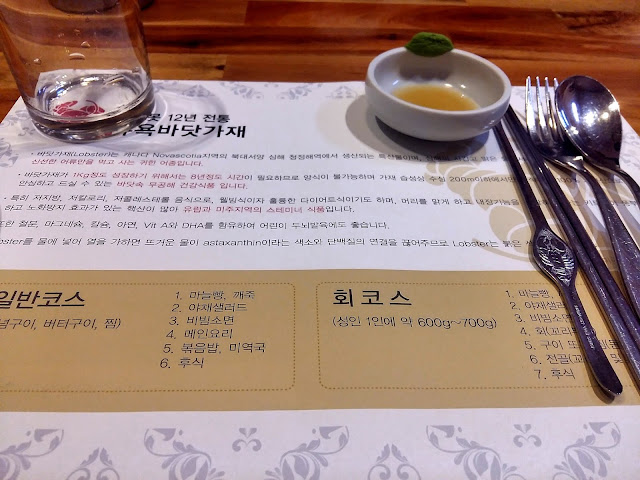 12년 전통
욕바닷가재
· 바닷가재(Lobster)는 캐나다 Novascotia지역의 북대서양 심해 청정해역에서 생산되는
신선한 어류만을 먹고 사는 귀한 어종입니다.
· 바닷가재가 1Kg정도 성장하기 위해서는 8년정도 시간이 필요하므로 양식이 불가능하며 가재 습성상 수심 200m이하에서
안심하고 드실 수 있는 바닷속 무공해 건강식품 입니다.
· 특히 저지방, 저칼로리, 저콜레스테롤 음식으로, 웰빙식이자 훌륭한 다이어트식이기도 하며, 머리를 맑게 하고
하고 노화방지 효과가 있는 핵산이 많아 유럽과 미주지역의 스테미너 식품입니다.
또한 철분, 마그네슘, 칼슘, 아연, Vit A와 DHA를 함유하여 어린이 두뇌발육에도 좋습니다.
bster를 물에 넣어 열을 가하면 뜨거운 물이 astaxanthin이라는 색소와 단백질의 연결을 끊어주므로 Lobster는 붉은
일반코스
구이, 버터구이, 찜)
1. 마늘빵, 깨죽
2. 야채샐러드
3. 비빔소면
4. 메인요리
5. 볶음밥, 미역국
6. 후식
회코스
(성인 1인에 약 600g~700g)
1. 마늘빵,
2. 야채샐러
3. 비빔소
4. 회(꼬리
5. 구이 또
6. 전골(
7. 후식